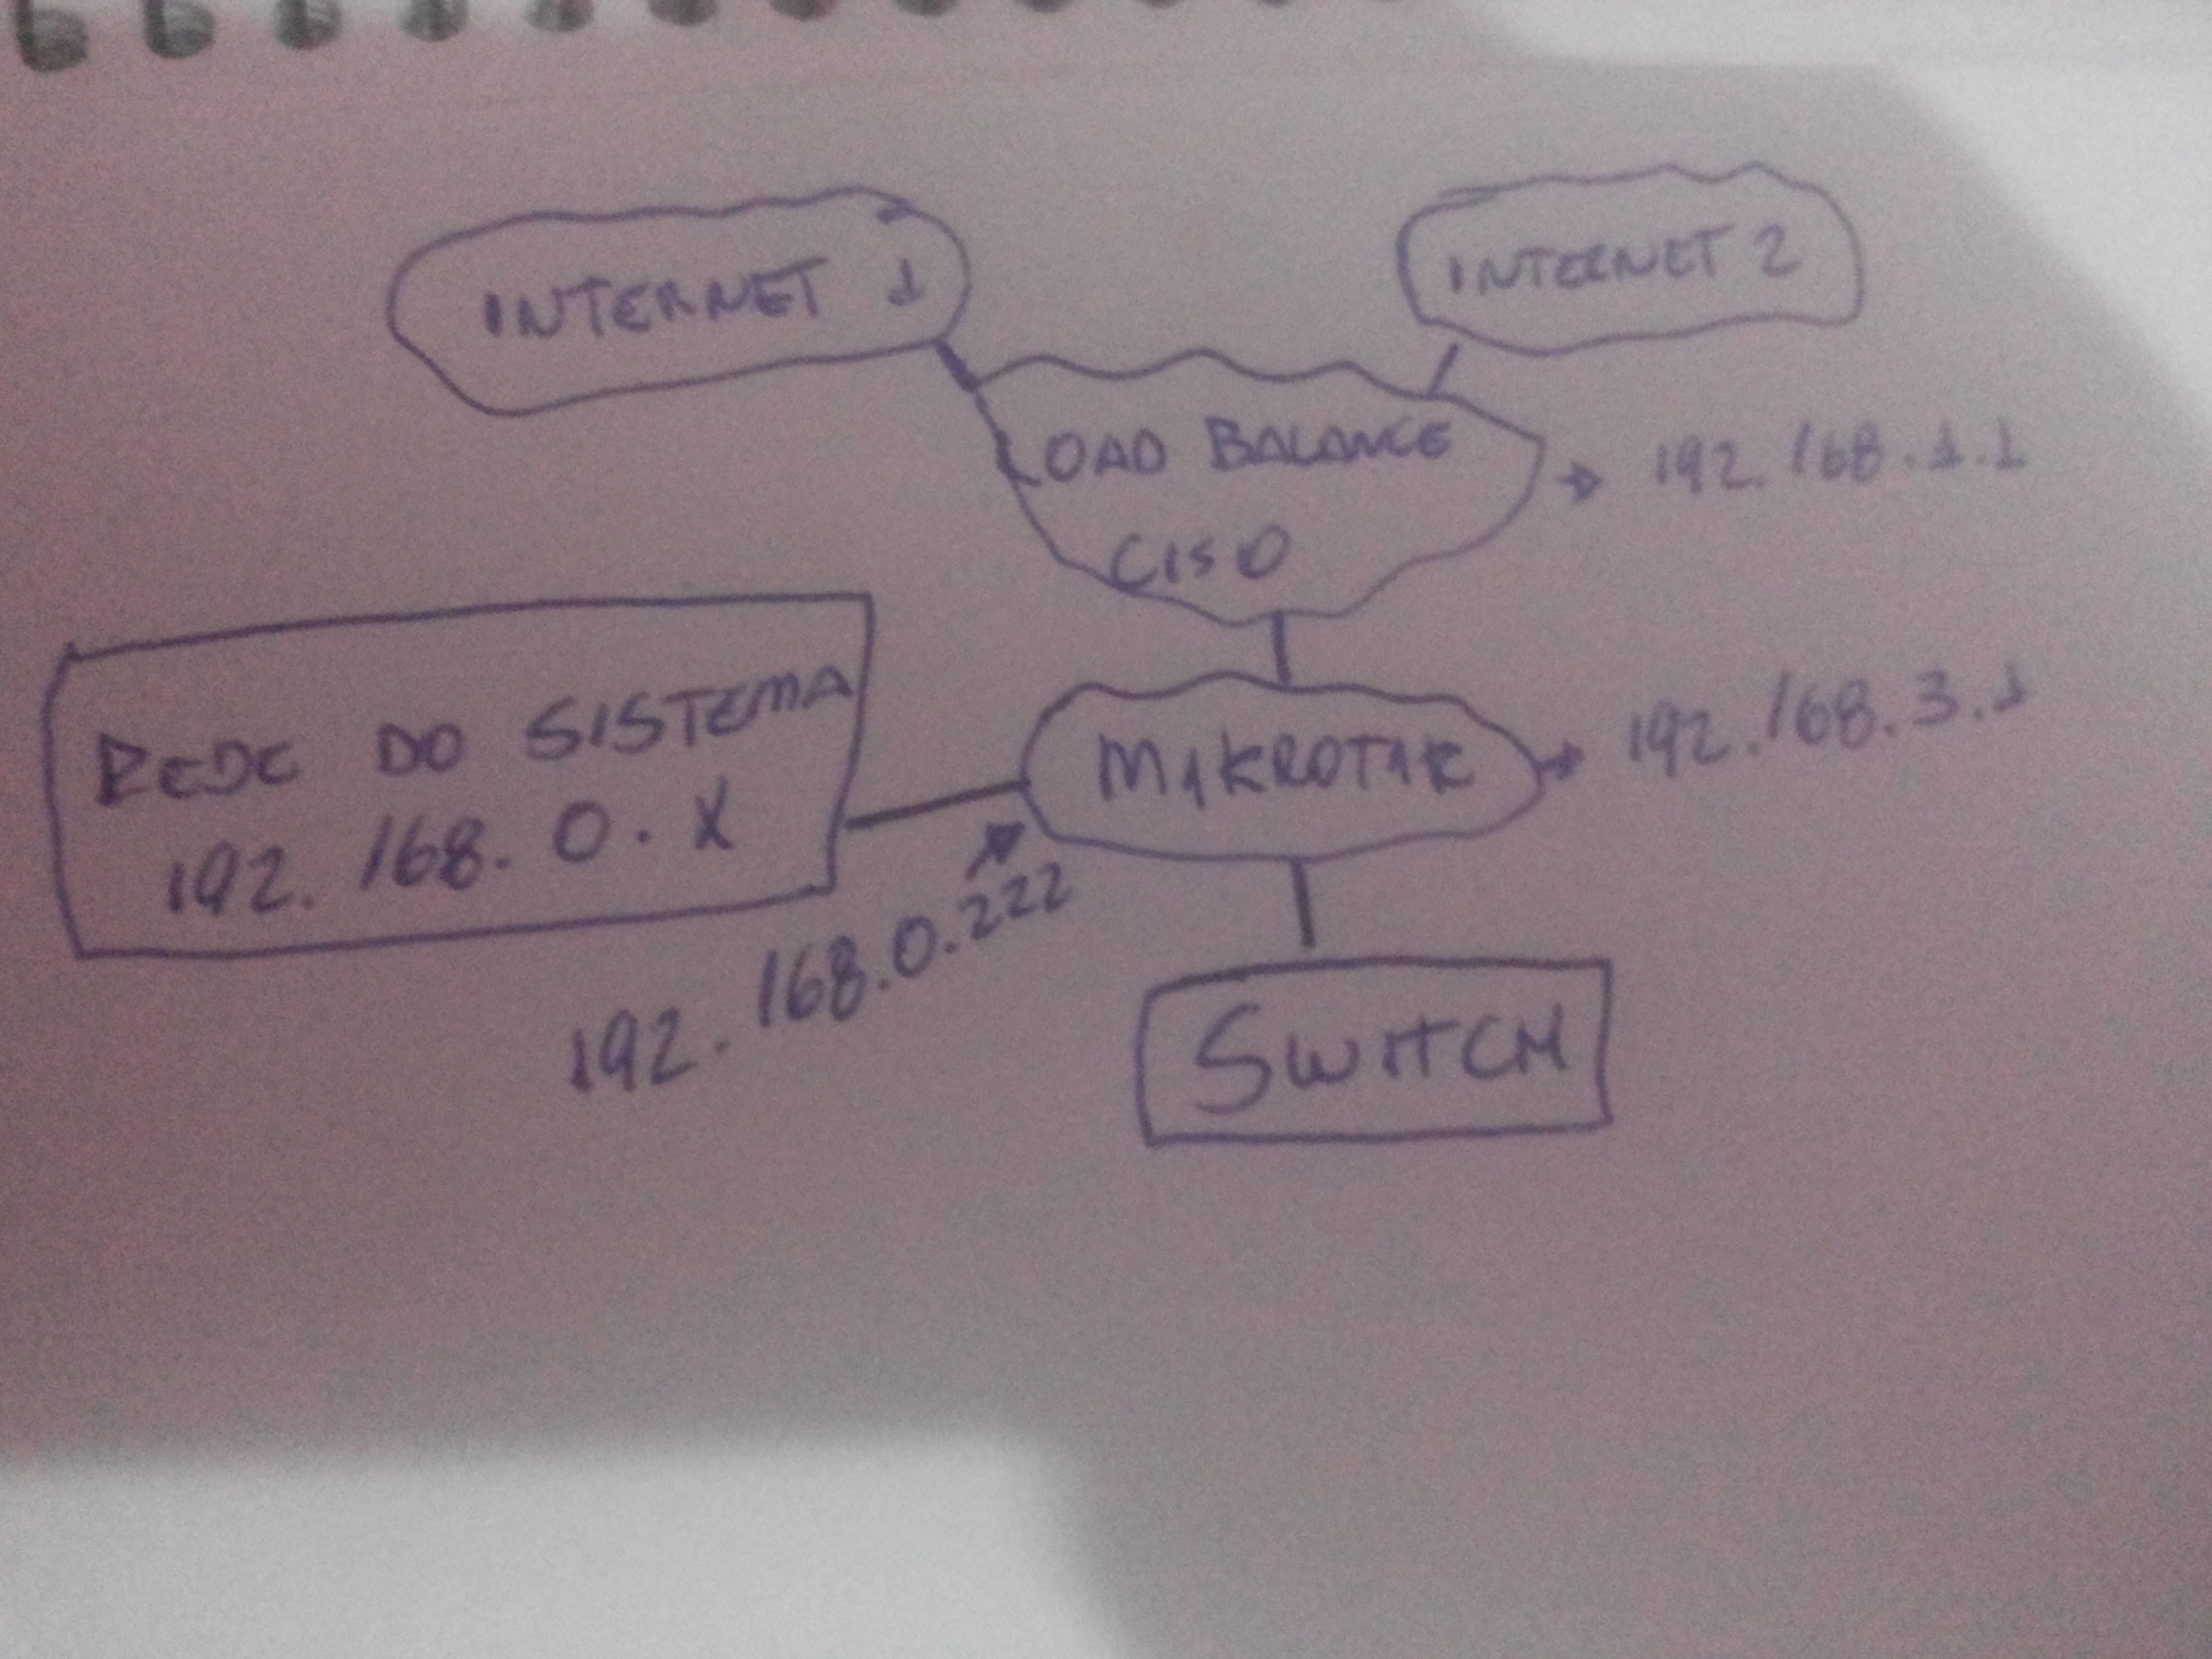 INTERNET 1
INTERNET 2
LOAD BALANCE
CISO
192.168.1.1
REDE DO SISTEMA
192.168.0.X
MIKROTIK
192.168.3.1
192.168.0.222
SWITCH